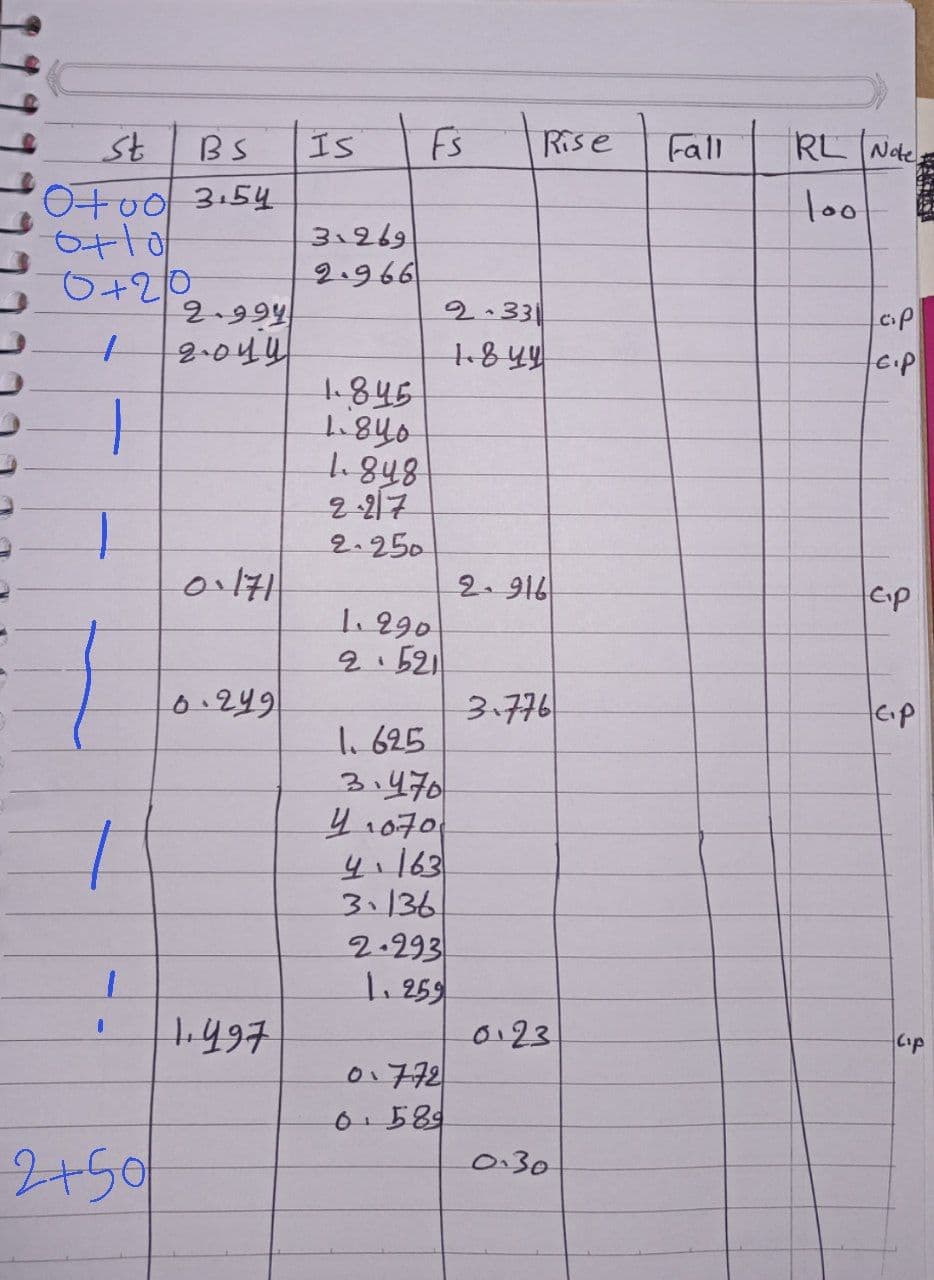 St BS IS Fs Rise Fall RL Note
0+00 3.54 100
0+10 3.269
0+20 2.966
2.994 2.331 C.P
2.044 1.844 C.P
1.845
1.840
1.848
2.217
2.250
0.171 2.916 C.P
1.290
2.521
0.249 3.776 C.P
1.625
3.470
4.070
4.163
3.136
2.293
1.259
1.497 0.23 C.P
0.772
0.589
2+50 0.30